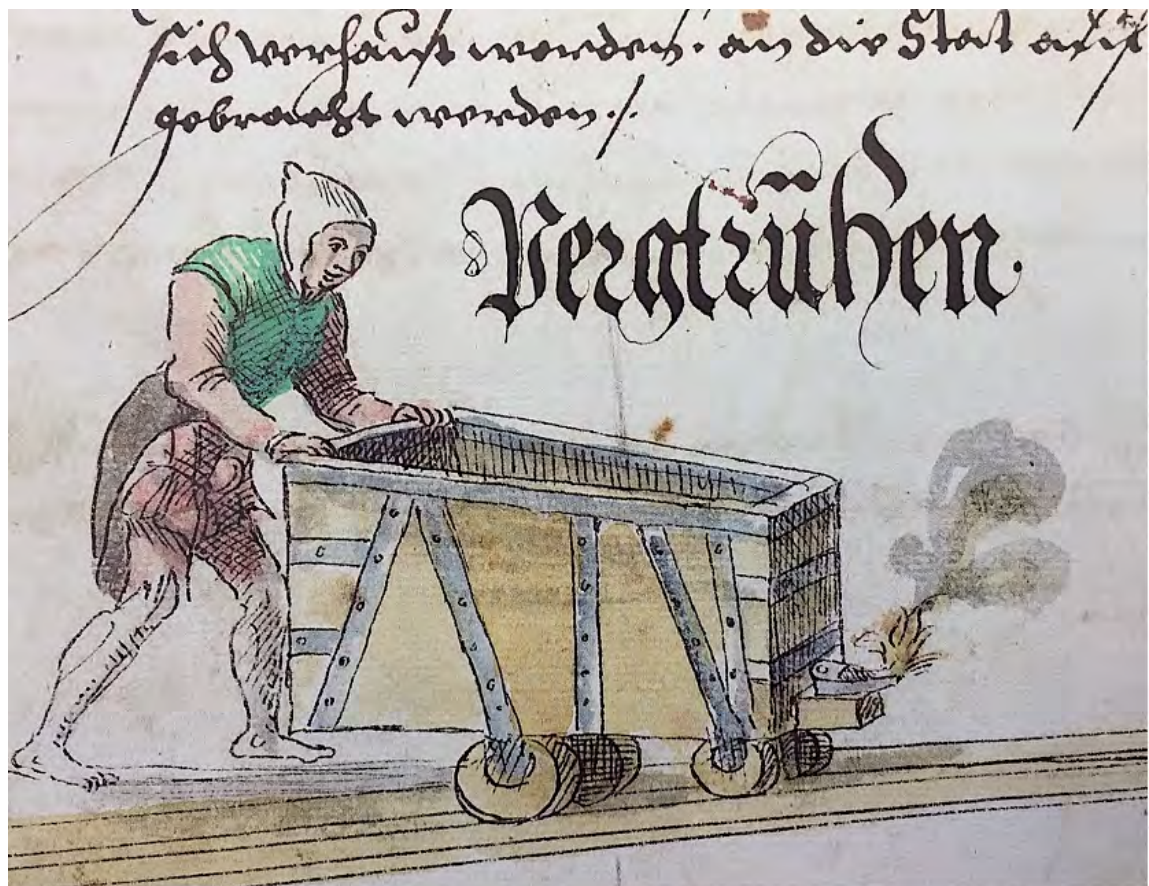 sich verhaust werden. an die Stat auss
gebracht werden ./.
Pergtrühen.